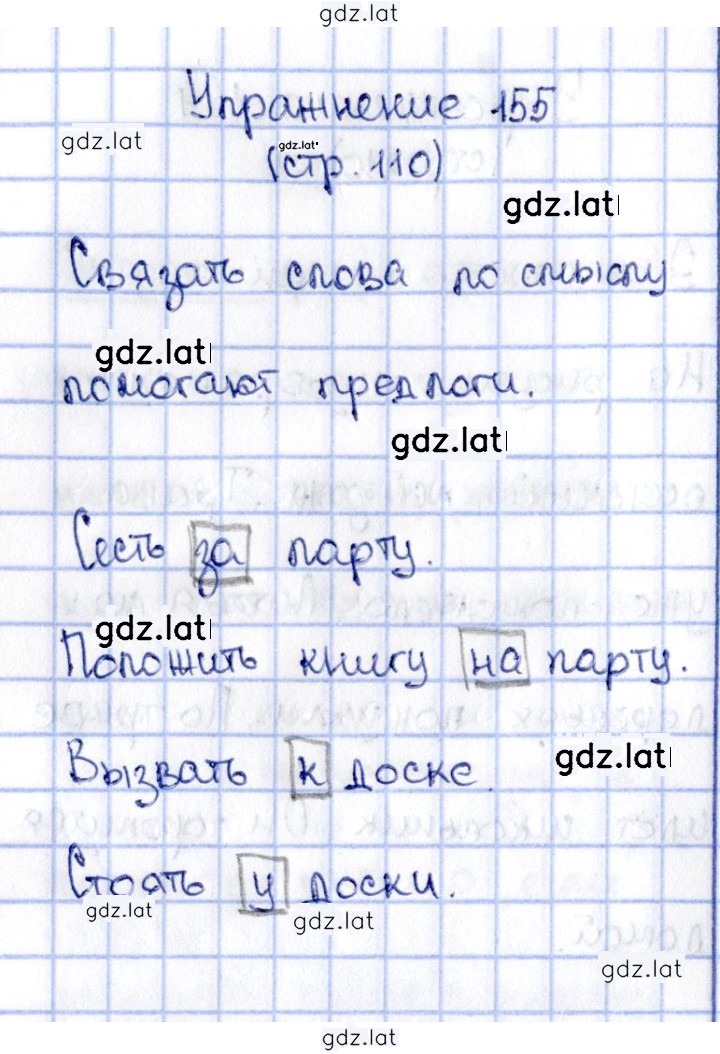 gdz.lat
Упражнение 155
gdz.lat
gdz.lat
(стр. 110)
gdz.lat
Связать слова по смыслу
gdz.lat
помогают предлоги.
gdz.lat
Сесть за парту.
gdz.lat
Положить книгу на парту.
gdz.lat
Вызвать к доске.
Стоять у доски.
gdz.lat
gdz.lat
gdz.lat
gdz.lat